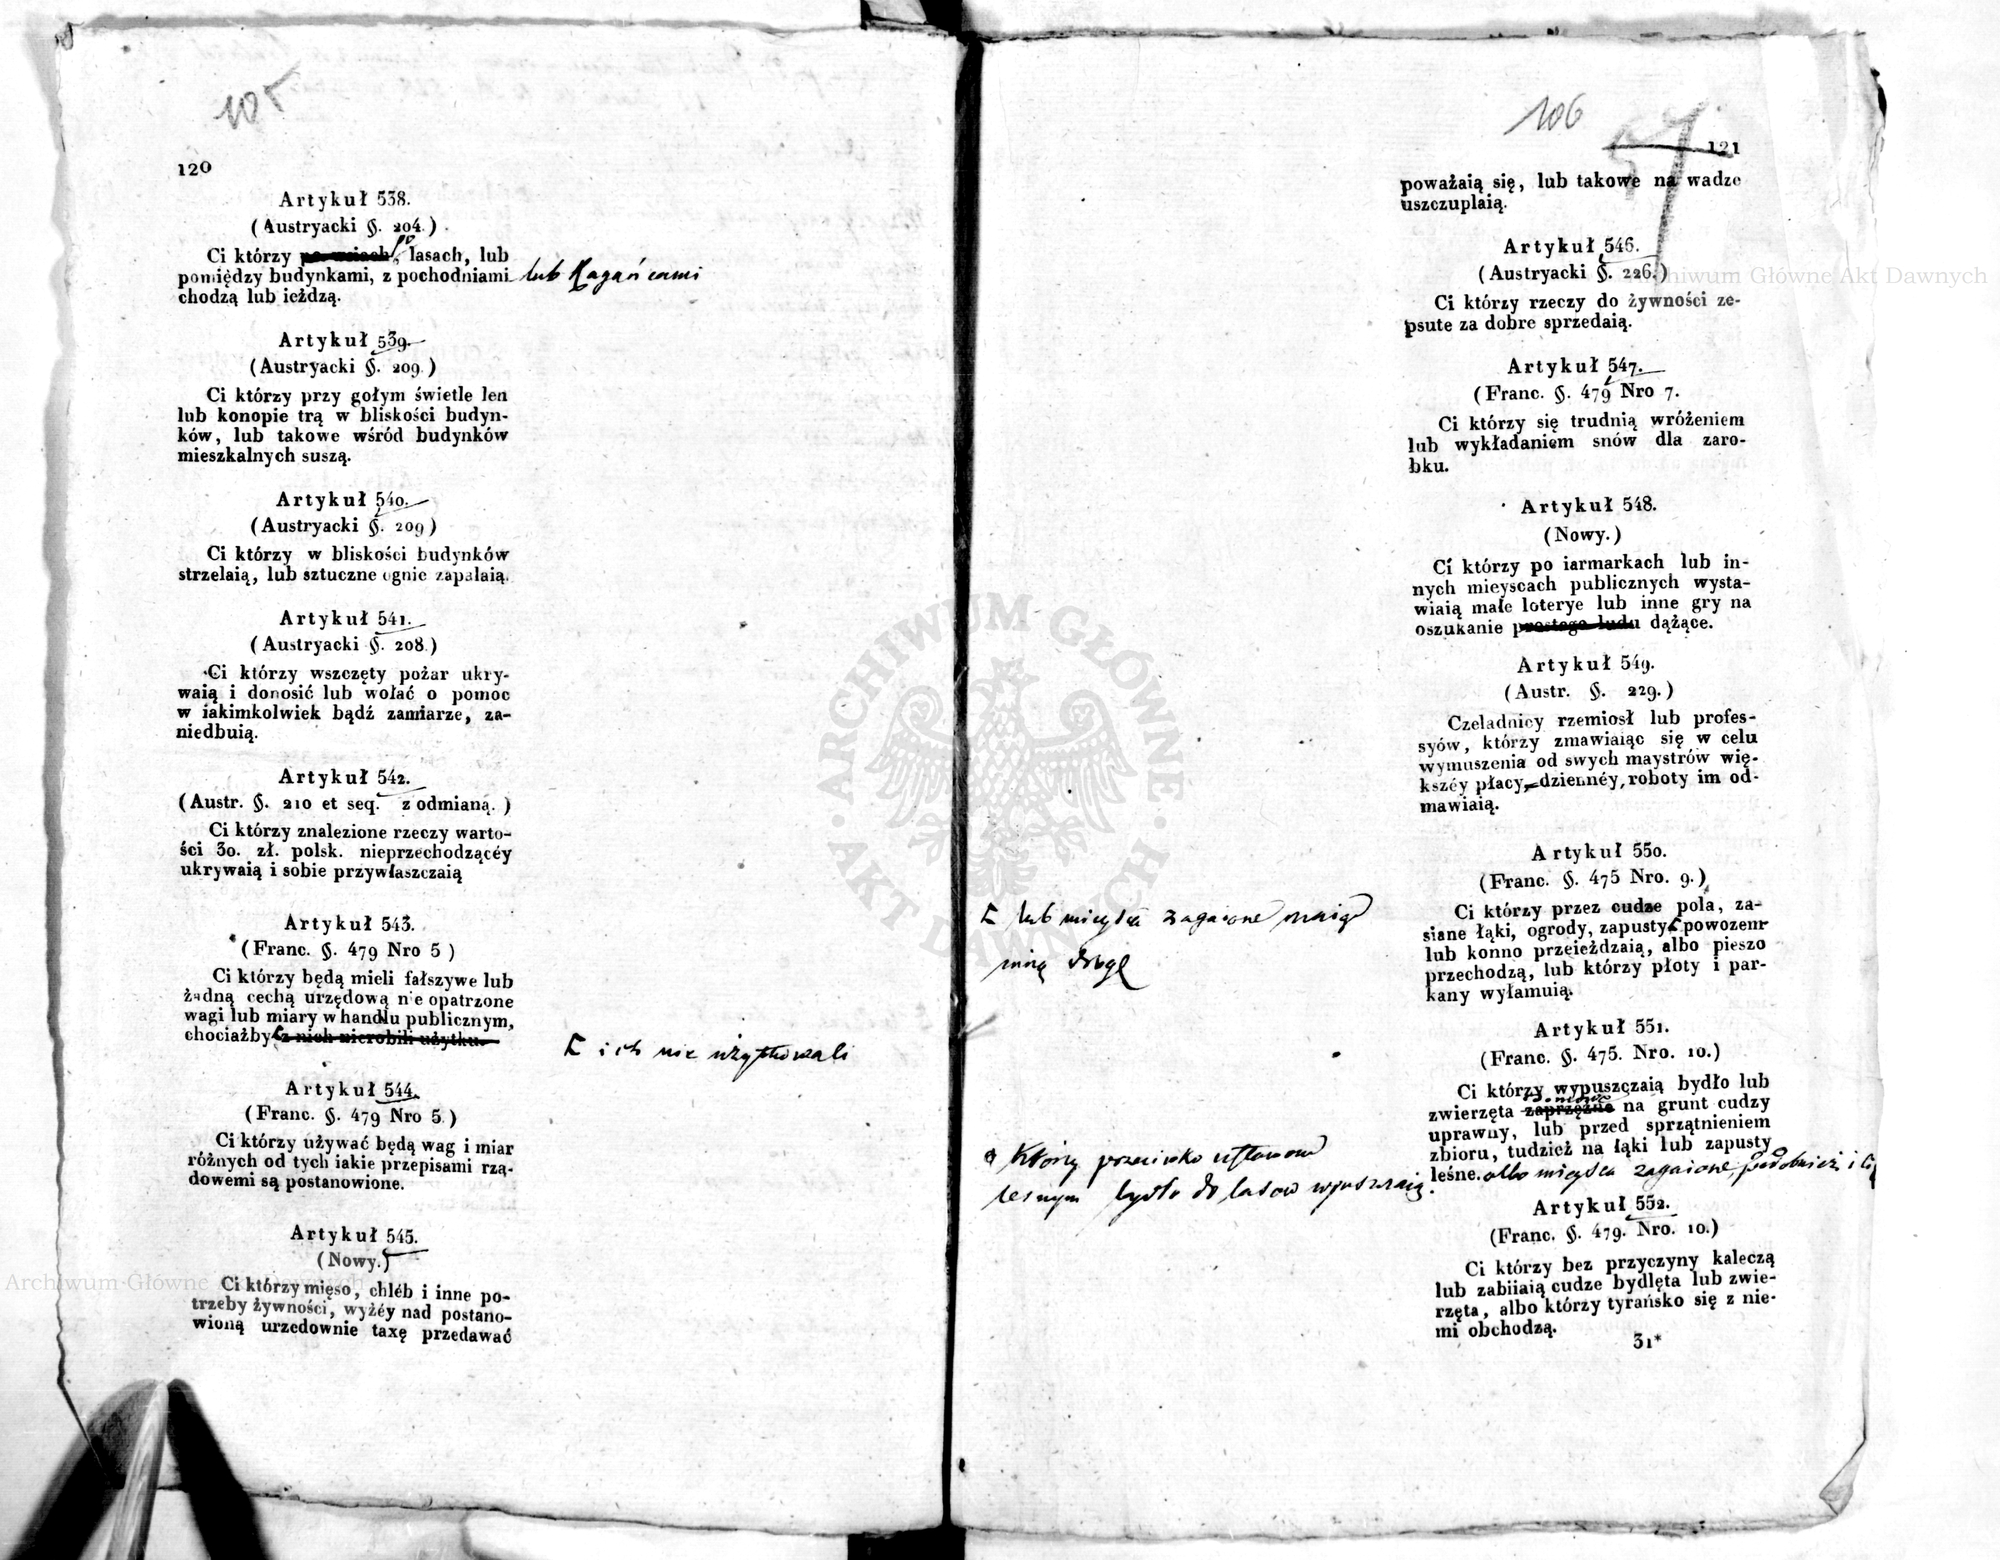 105
120
Artykuł 538.
(Austryacki §. 204.)
Ci którzy po wsiach, po lasach, lub
pomiędzy budynkami, z pochodniami lub Kagańcami
chodzą lub ieżdzą.
Artykuł 539.
(Austryacki §. 209.)
Ci którzy przy gołym świetle len
lub konopie trą w bliskości budyn-
ków, lub takowe wśród budynków
mieszkalnych suszą.
Artykuł 540.
(Austryacki §. 209)
Ci którzy w bliskości budynków
strzelaią, lub sztuczne ognie zapalaią.
Artykuł 541.
(Austryacki §. 208.)
Ci którzy wszczęty pożar ukry-
waią i donosić lub wołać o pomoc
w iakimkolwiek bądź zamiarze, za-
niedbuią.
Artykuł 542.
(Austr. §. 210 et seq. z odmianą.)
Ci którzy znalezione rzeczy warto-
ści 30. zł. polsk. nieprzechodzącéy
ukrywaią i sobie przywłaszczaią
Artykuł 543.
(Franc. §. 479 Nro 5)
Ci którzy będą mieli fałszywe lub
żadną cechą urzędową nie opatrzone
wagi lub miary w handlu publicznym,
chociażby z nich nierobili użytku.
i ich nie użytkowali
Artykuł 544.
(Franc. §. 479 Nro 5.)
Ci którzy używać będą wag i miar
różnych od tych iakie przepisami rzą-
dowemi są postanowione.
Artykuł 545.
(Nowy.)
Ci którzy mięso, chléb i inne po-
trzeby żywności, wyżéy nad postano-
wioną urzedownie taxę przedawać
106
57
121
poważaią się, lub takowe na wadze
uszczuplaią.
Artykuł 546.
(Austryacki §. 226.)
Ci którzy rzeczy do żywności ze-
psute za dobre sprzedaią.
Artykuł 547.
(Franc. §. 479 Nro 7.
Ci którzy się trudnią wróżeniem
lub wykładaniem snów dla zaro-
bku.
Artykuł 548.
(Nowy.)
Ci którzy po iarmarkach lub in-
nych mieyscach publicznych wysta-
wiaią małe loterye lub inne gry na
oszukanie prostego ludu dążące.
Artykuł 549.
(Austr. §. 229.)
Czeladnicy rzemiosł lub profes-
syów, którzy zmawiaiąc się w celu
wymuszenia od swych maystrów wię-
kszéy płacy, dziennéy, roboty im od-
mawiaią.
Artykuł 550.
(Franc. §. 475 Nro. 9.)
Ci którzy przez cudze pola, za-
siane łąki, ogrody, zapusty powozem
lub konno przeieżdzaią, albo pieszo
przechodzą, lub którzy płoty i par-
kany wyłamuią.
lub mieysca zagaione maiąc
inną drogę
Artykuł 551.
(Franc. §. 475. Nro. 10.)
Ci którzy wypuszczaią bydło lub
zwierzęta zaprzężne na grunt cudzy
uprawny, lub przed sprzątnieniem
zbioru, tudzież na łąki lub zapusty
leśne. albo mieysca zagaione, podobnież i Ci
którzy przeciwko ustawom
leśnym bydło do lasów wpuszczaią.
Artykuł 552.
(Franc. §. 479. Nro. 10.)
Ci którzy bez przyczyny kaleczą
lub zabiiaią cudze bydlęta lub zwie-
rzęta, albo którzy tyrańsko się z nie-
mi obchodzą.
31*
ARCHIWUM GŁÓWNE AKT DAWNYCH
Archiwum Główne Akt Dawnych
Archiwum Główne Akt Dawnych